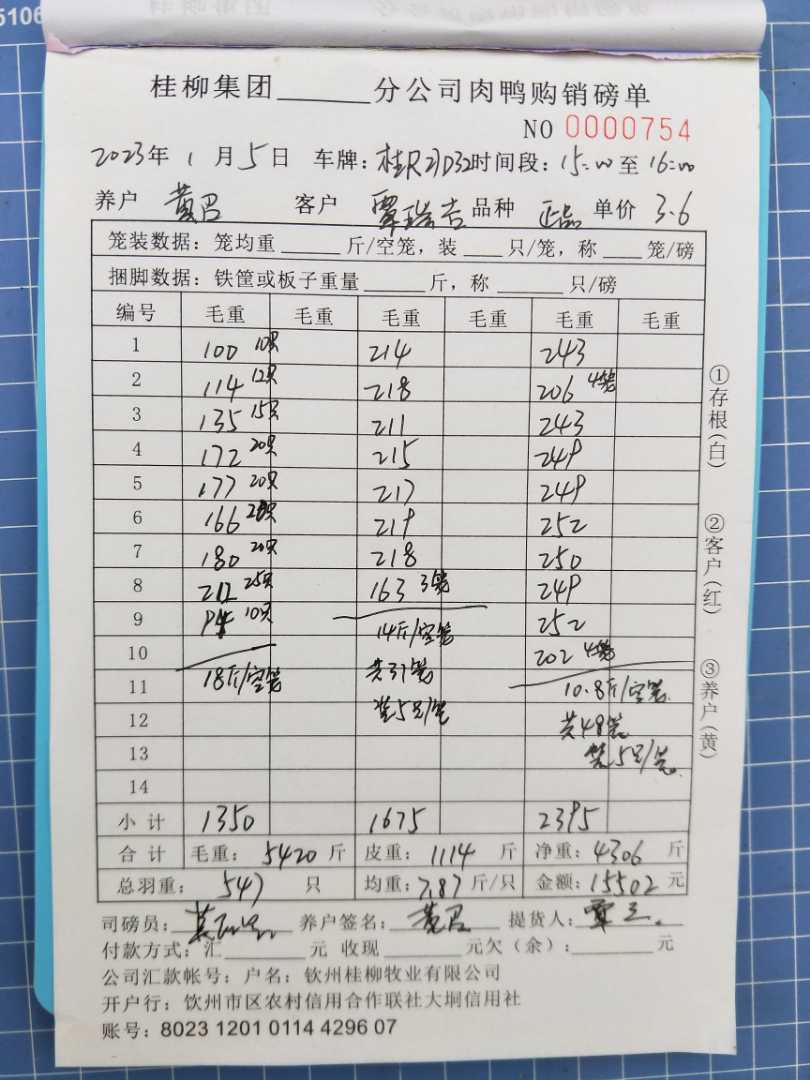 5106
桂柳集团______分公司肉鸭购销磅单
NO 0000754
2023年 1 月 5 日 车牌: 时间段: 15:00 至 16:00
养户 黄 客户 覃瑞吉 品种 正品 单价 3.6
笼装数据: 笼均重 _____ 斤/空笼, 装 ___ 只/笼, 称 ___ 笼/磅
捆脚数据: 铁筐或板子重量 _____ 斤, 称 _____ 只/磅
编号 毛重 毛重 毛重 毛重 毛重 毛重
1 100 10只 214 243
2 114 12只 218 206 4笼
3 135 15只 211 243
4 172 20只 215 249
5 177 20只 217 249
6 166 只 219 252
7 180 20只 218 250
8 212 25只 163 3笼 249
9 10只 14斤/空笼 252
10 202 4笼
11 18斤/空笼 共31笼 10.8斤/空笼
12 装5只/笼 共48笼
13 装5只/笼
14
小计 1350 1675 2395
合计 毛重: 5420 斤 皮重: 1114 斤 净重: 4306 斤
总羽重: 547 只 均重: 7.87 斤/只 金额: 15502 元
司磅员: 养户签名: 黄 提货人: 覃
付款方式: 汇______元 收现______元欠(余):______元
公司汇款帐号: 户名: 钦州桂柳牧业有限公司
开户行: 钦州市区农村信用合作联社大垌信用社
账号: 8023 1201 0114 4296 07
①存根(白)
②客户(红)
③养户(黄)